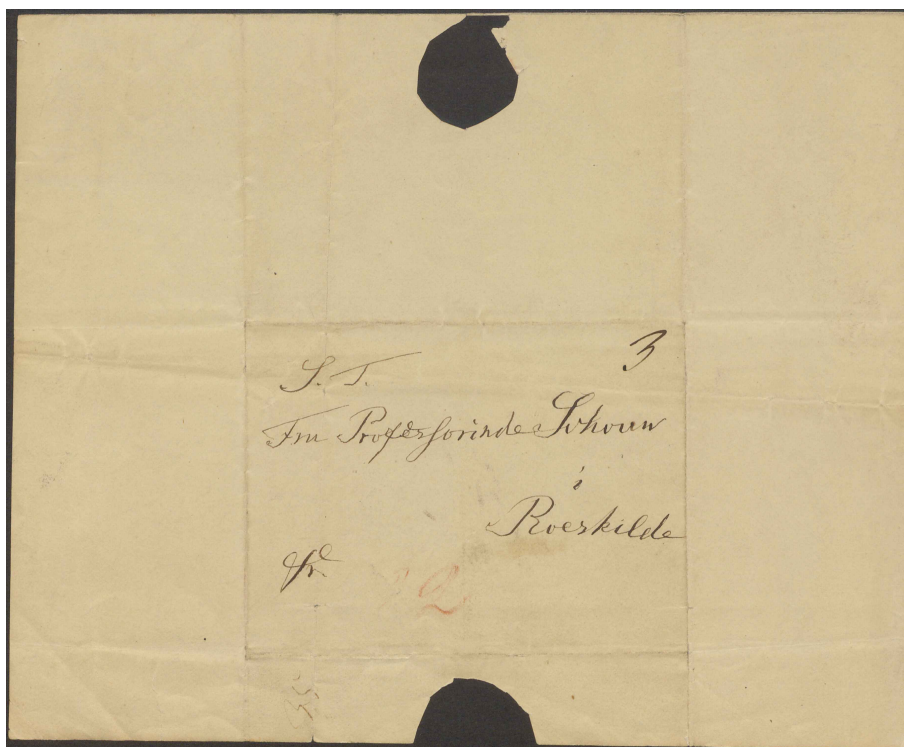 3
S. T.
Fru Professorinde Schouw
i
Roeskilde
fr.
2